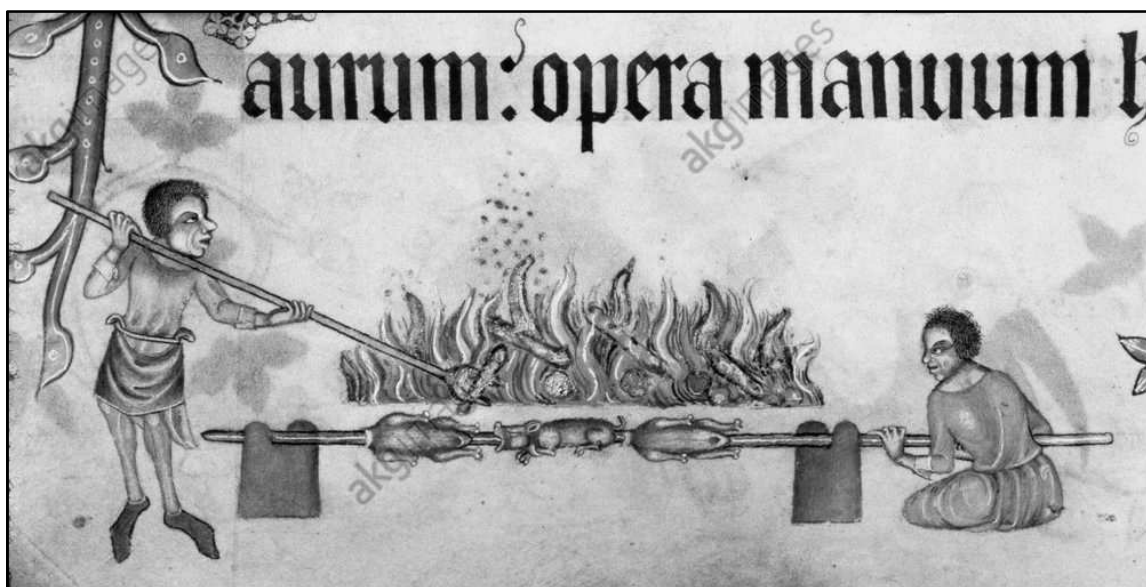 aurum: opera manuum h
akgimages
akgimages
akgimages